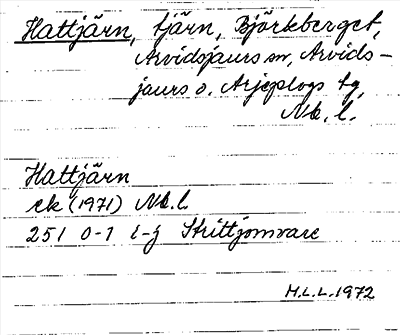 Hattjärn, tjärn, Björkberget,
Arvidsjaurs sn, Arvids-
jaurs o. Arjeplogs tg,
Nb. l.
Hattjärn
ek (1971) Nb. l.
251 0-1 i-j Strittjomvare
M.L.L. 1972